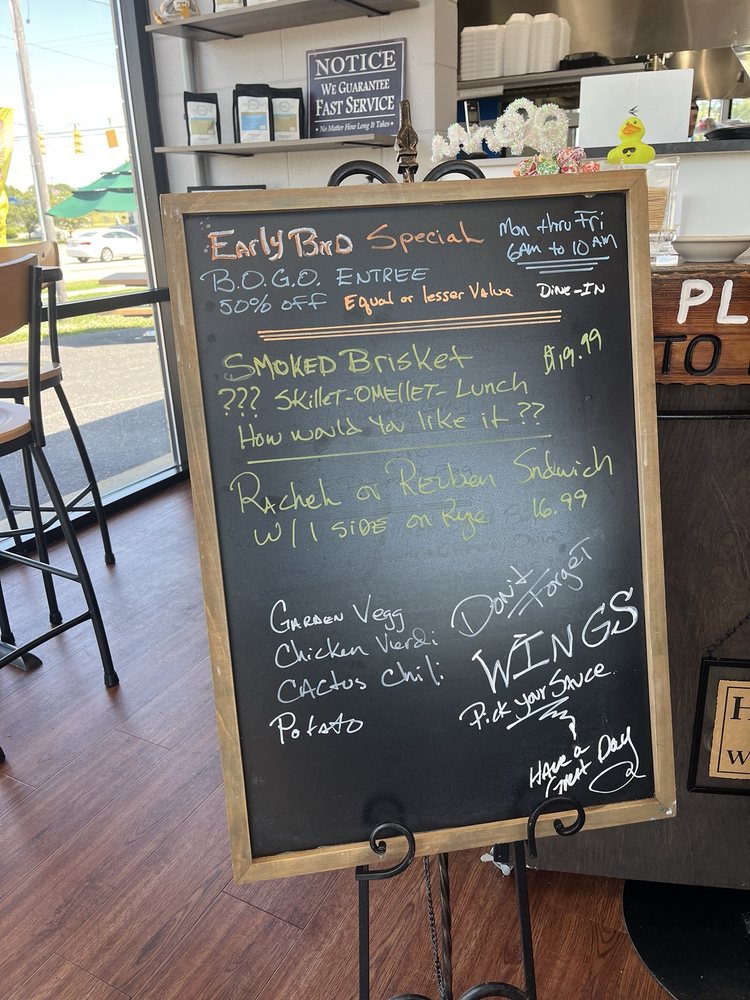 NOTICE
WE GUARANTEE
FAST SERVICE
No Matter How Long It Takes
Early Bird Special
Mon thru Fri
6AM to 10AM
B.O.G.O. ENTREE
50% off Equal or lesser Value
DINE-IN
SMOKED Brisket $19.99
??? Skillet-OMELLET-Lunch
How would You like it ??
Rachel or Reuben Sndwich
W/ 1 SIDE on Rye 16.99
Garden Vegg
Chicken Verdi
CACtus Chili
Potato
Don't
Forget
WINGS
Pick your Sauce
HAVE a
Great Day
PL
TO
H
W